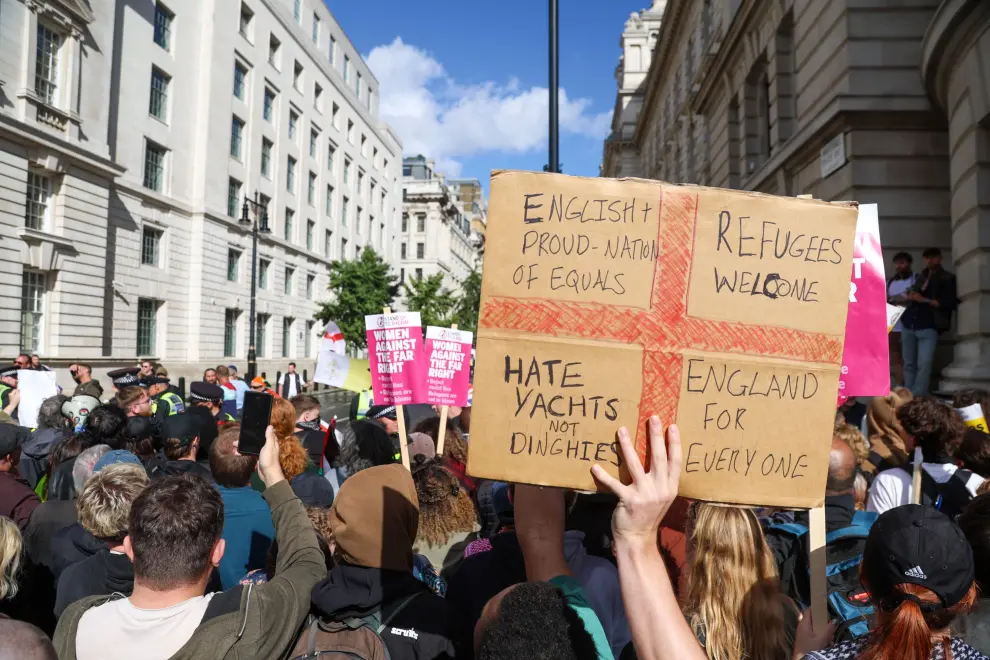 ENGLISH +
PROUD-NATION
OF EQUALS
REFUGEES
WELCOME
HATE
YACHTS
NOT
DINGHIES
ENGLAND
FOR
EVERYONE
WOMEN
AGAINST THE
FAR RIGHT
WOMEN
AGAINST
THE FAR
RIGHT
adidas
scruffs